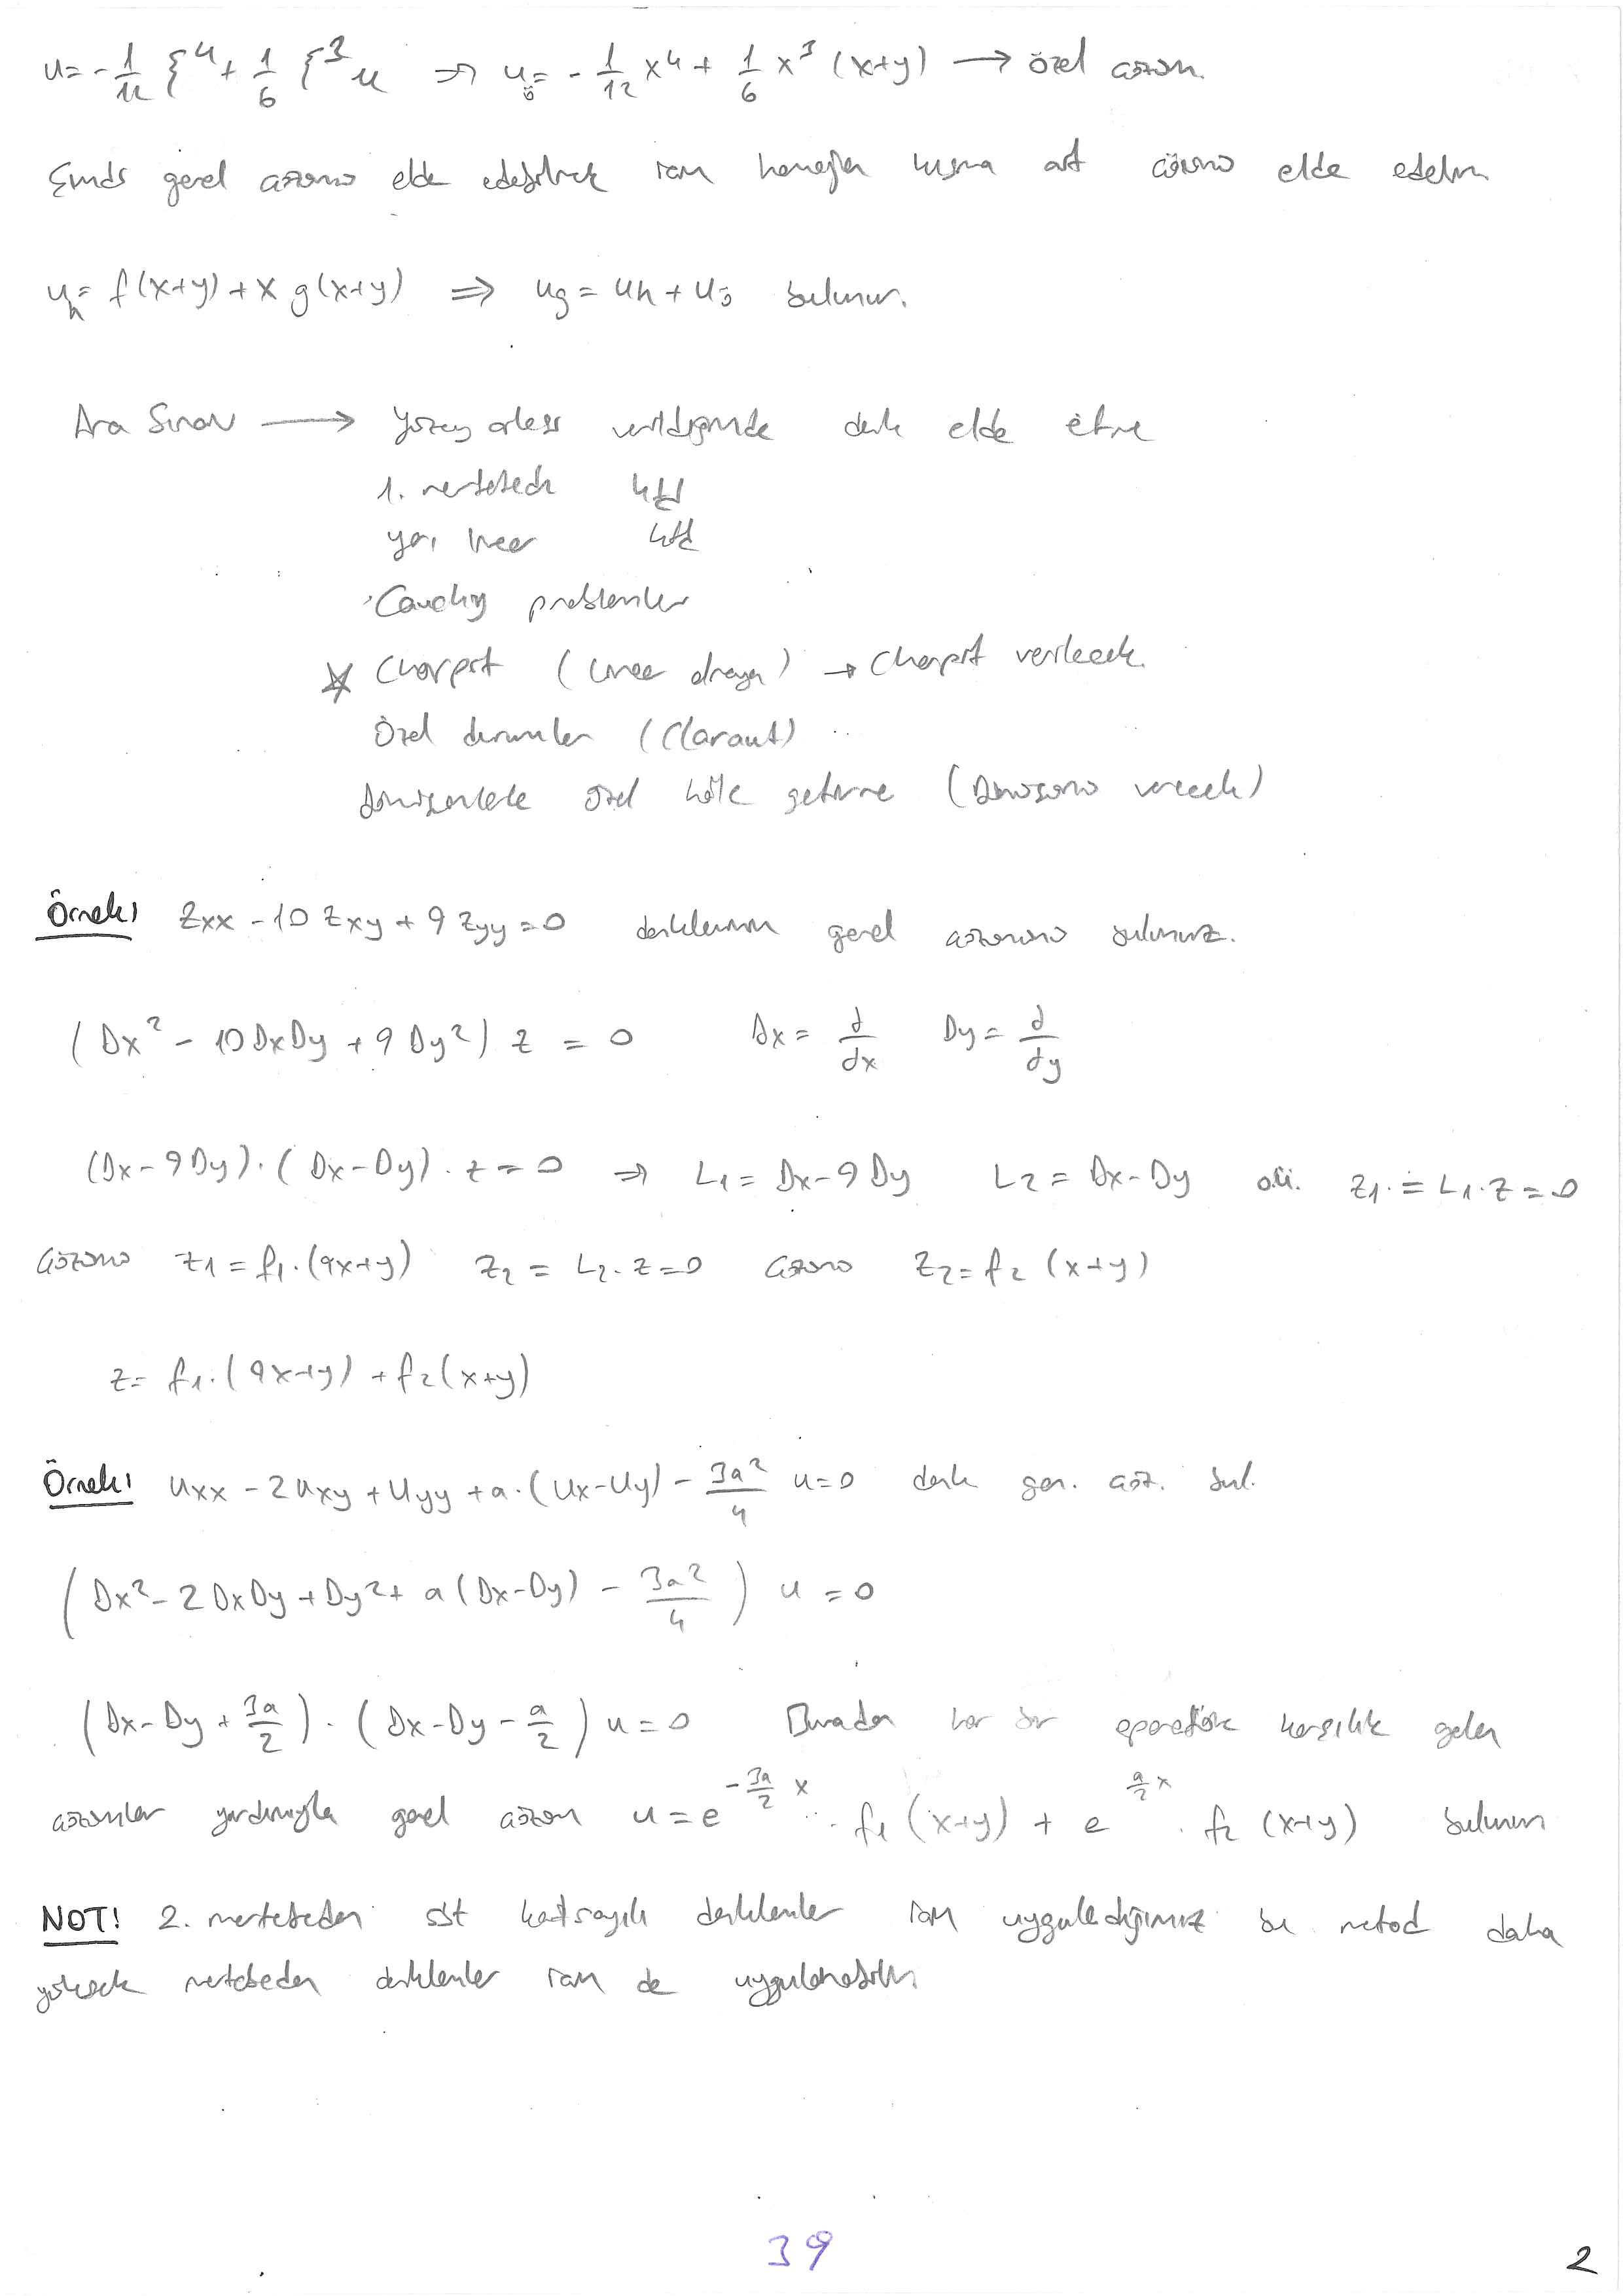 u = -1/12 ξ^4 + 1/6 ξ^3 μ ⇒ u_ö = -1/12 x^4 + 1/6 x^3 (x+y) → özel çözüm.
Şimdi genel çözümü elde edebilmek için homojen kısma ait çözümü elde edelim
u_h = f(x+y) + x g(x+y) ⇒ u_g = u_h + u_ö bulunur.
Ara Sınav → Yüzey ailesi verildiğinde denk elde etme
1. mertebeden
yarı lineer
Cauchy problemler
☆ Charpit (lineer olmayan) → Charpit verilecek.
Özel durumlar (Clairaut)
dönüşümlerle özel hale getirme (Dönüşümü verecek)
Örnek: Zxx - 10 Zxy + 9 Zyy = 0 denkleminin genel çözümünü bulunuz.
(Dx² - 10 DxDy + 9 Dy²) z = 0 Dx = ∂/∂x Dy = ∂/∂y
(Dx - 9Dy).(Dx - Dy).z = 0 ⇒ L1 = Dx - 9Dy L2 = Dx - Dy z1 = L1.z = 0
çözümü z1 = f1.(9x+y) z2 = L2.z = 0 çözümü z2 = f2 (x+y)
z = f1.(9x+y) + f2(x+y)
Örnek: Uxx - 2Uxy + Uyy + a.(Ux - Uy) - 3a²/4 u = 0 denk gen. çöz. bul.
(Dx² - 2DxDy + Dy² + a(Dx - Dy) - 3a²/4) u = 0
(Dx - Dy + 3a/2).(Dx - Dy - a/2) u = 0 Buradan her bir operatöre karşılık gelen
çözümler yardımıyla genel çözüm u = e^(-3a/2 x) . f1 (x+y) + e^(a/2 x) . f2 (x+y) bulunur
NOT! 2. mertebeden sbt katsayılı denklemler için uyguladığımız bu metod daha
yüksek mertebeden denklemler için de uygulanabilir.
39
2